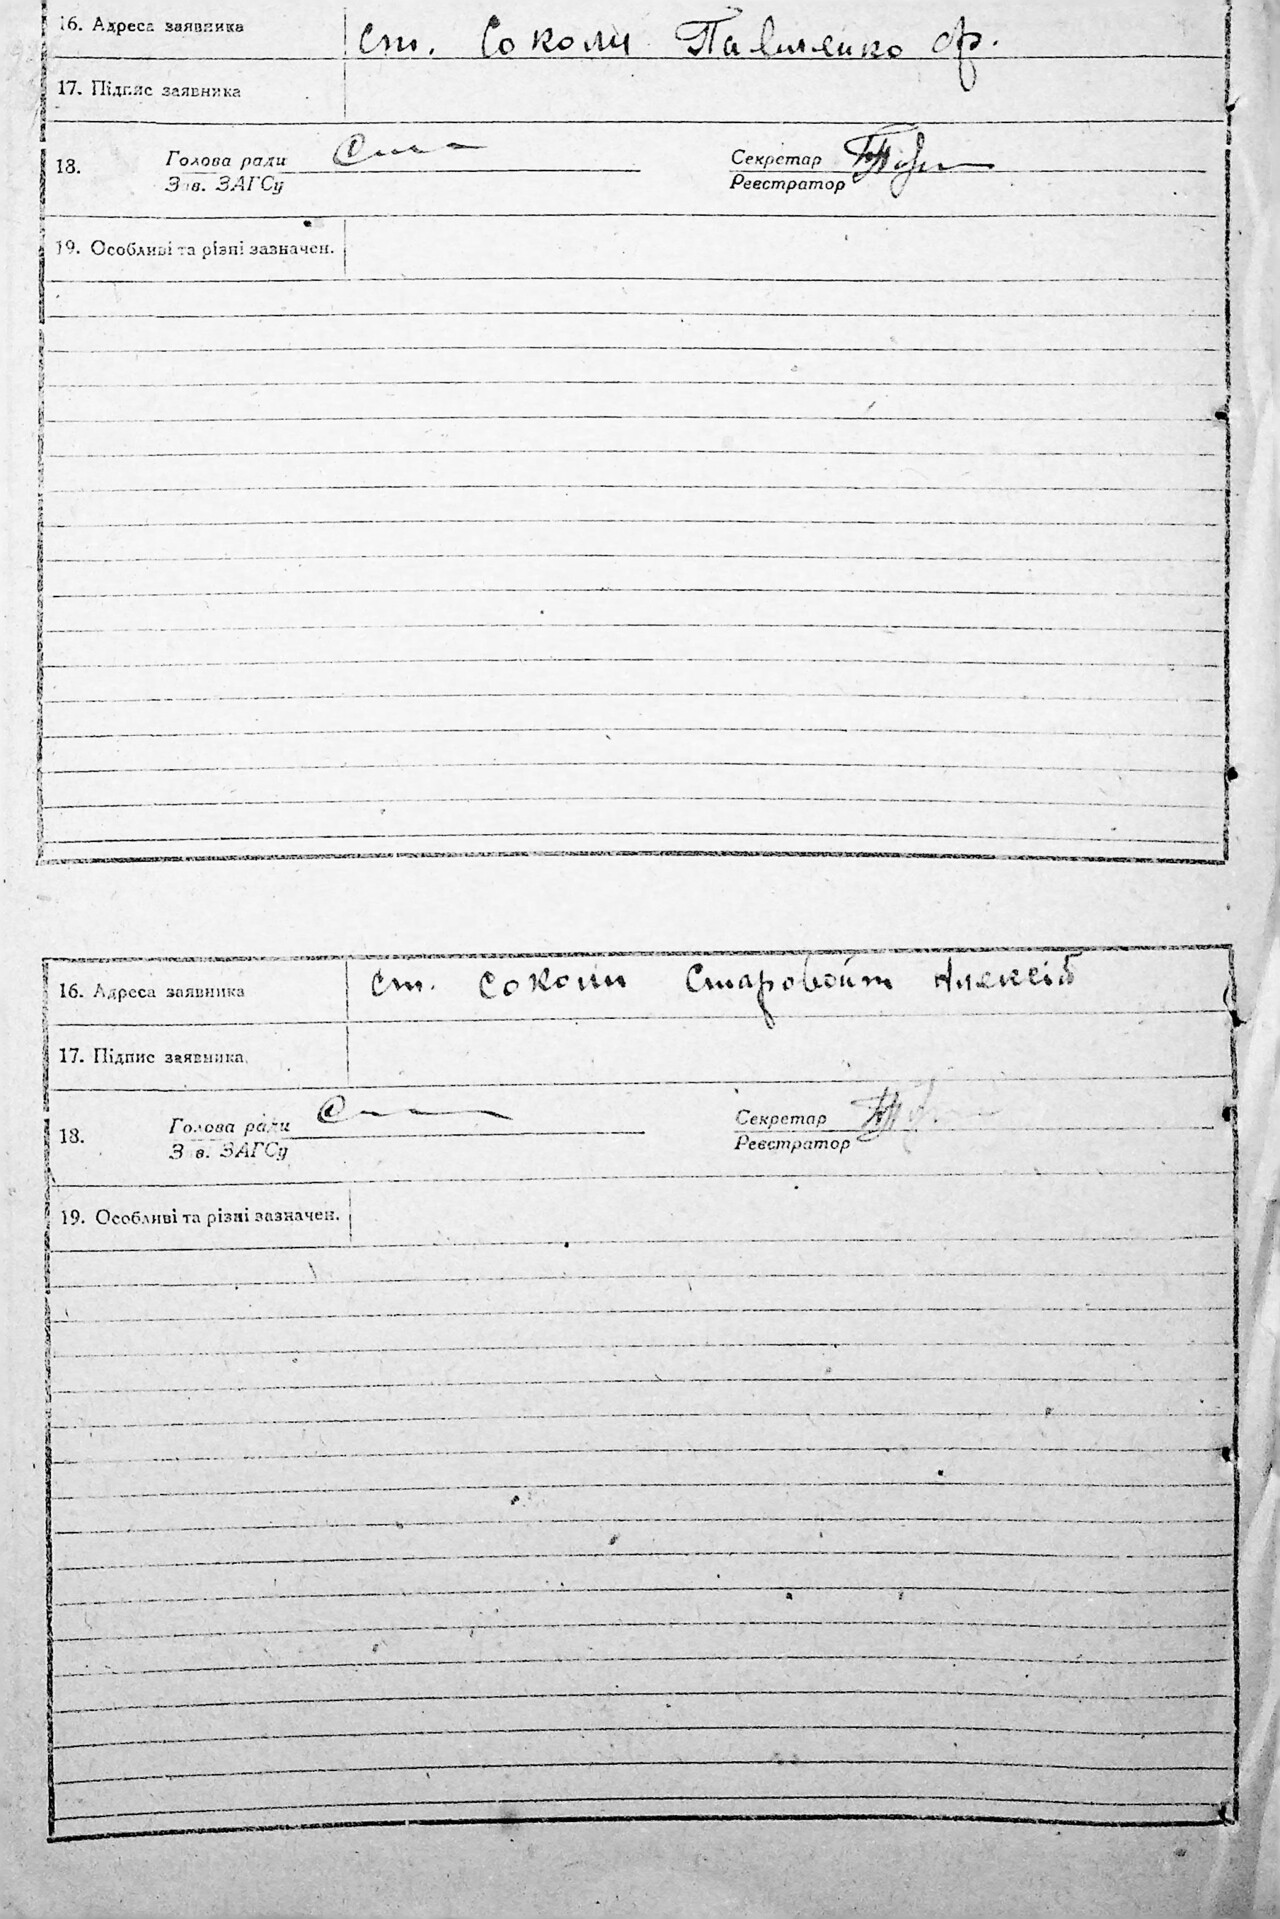 16. Адреса заявника ст. Соколи Павленко Ф.
17. Підпис заявника
18. Голова ради Секретар
Зав. ЗАГСу Реєстратор
19. Особливі та різні зазначен.
16. Адреса заявника ст. Соколи Старовойт Алексій
17. Підпис заявника
18. Голова ради Секретар
Зав. ЗАГСу Реєстратор
19. Особливі та різні зазначен.